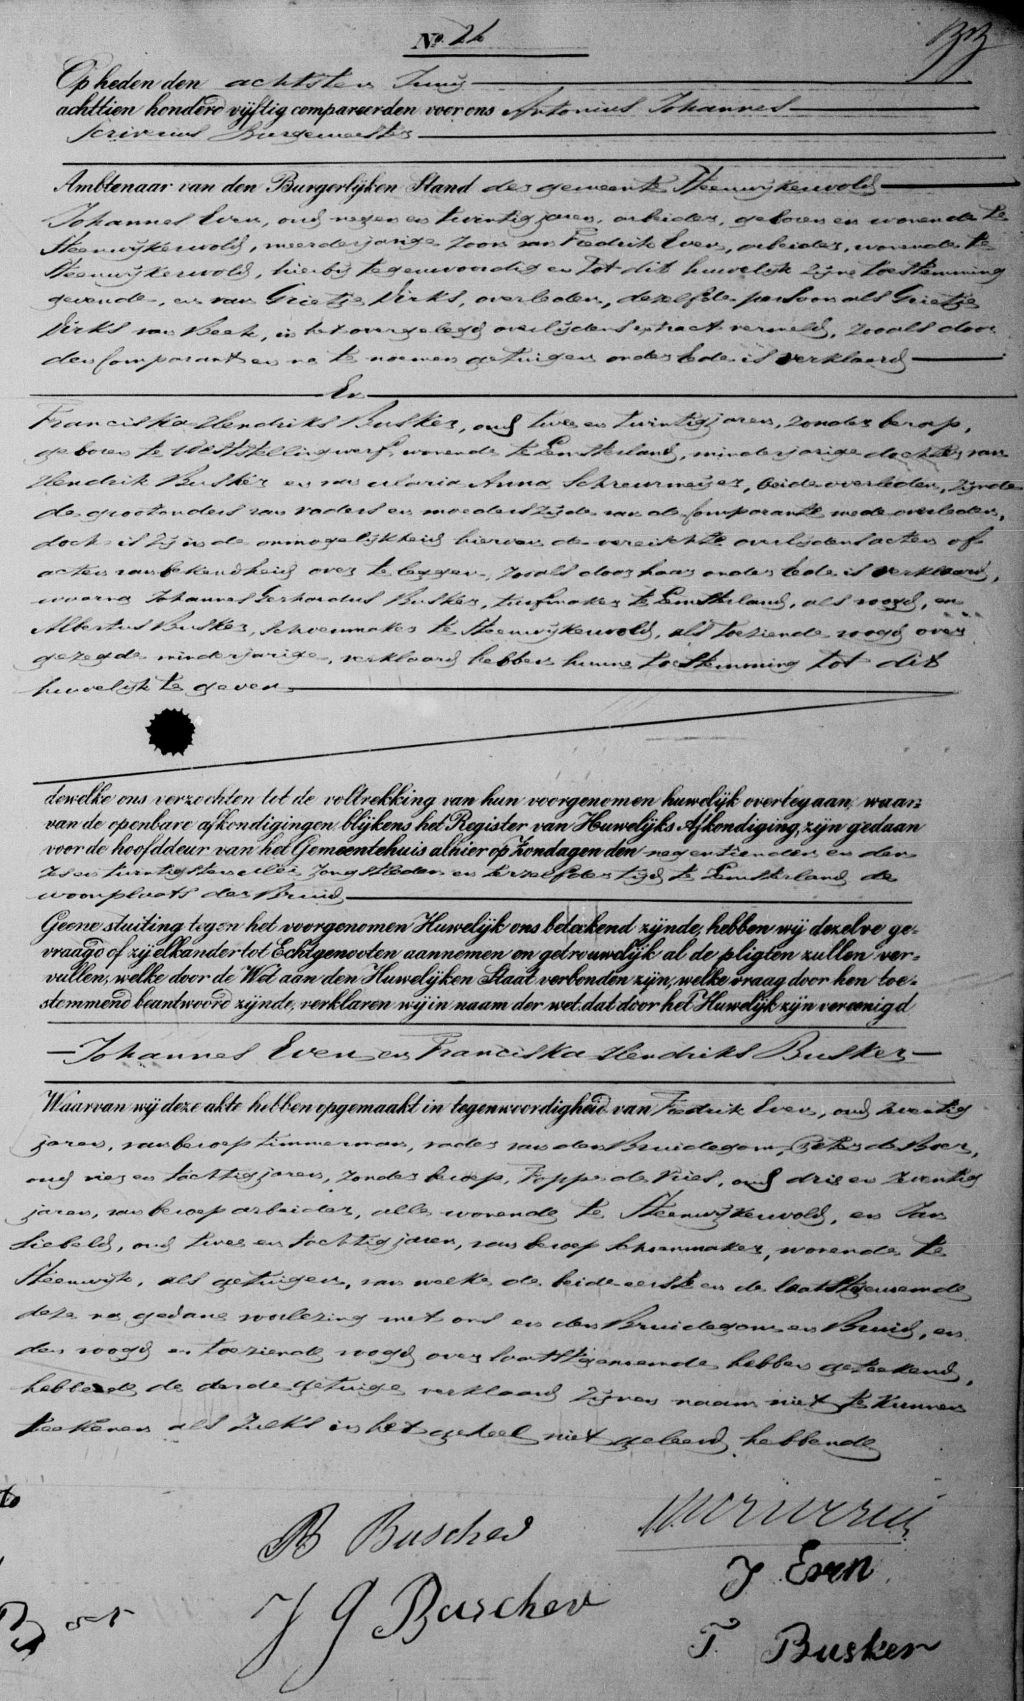 No. 21
Op heden den achtsten Junij
achttien honderd vijftig compareerden voor ons Antonius Johannes
Scriverius Burgemeester
Ambtenaar van den Burgerlijken Stand der gemeente Steenwijkerwold
Johannes Even, oud negen en twintig jaren, arbeider, geboren en wonende te
Steenwijkerwold, meerderjarige zoon van Fredrik Even, arbeider, wonende te
Steenwijkerwold, hierbij tegenwoordig en tot dit huwelijk zijne toestemming
gevende, en van Grietje Dirks, overleden, dezelfde persoon als Grietje
Dirks van Beek, in het overgelegd overlijdens extract vermeld, zooals door
den Comparant en na te noemen getuigen onder eede is verklaard
En
Franciska Hendriks Busker, oud twee en twintig jaren, zonder beroep,
geboren te Weststellingwerf, wonende te Lemsterland, minderjarige dochter van
Hendrik Busker en van Maria Anna Schreurmeijer, beide overleden, zijnde
de grootouders van vaders en moeders zijde van de Comparante mede overleden,
doch is zij in de onmogelijkheid hiervan de vereischte overlijdensacten of
acten van bekendheid over te leggen, zooals door haar onder eede is verklaard,
waarna Johannes Gerhardus Busker, turfmaker te Lemsterland, als voogd, en
Albertus Busker, schoenmaker te Steenwijkerwold, als toeziende voogd over
gezegde minderjarige, verklaard hebben hunne toestemming tot dit
huwelijk te geven
dewelke ons verzochten tot de voltrekking van hun voorgenomen huwelijk overtegaan, waar-
van de openbare afkondigingen blijkens het Register van Huwelijks Afkondiging, zijn gedaan
voor de hoofddeur van het Gemeentehuis alhier op Zondagen den negentienden en den
zes en twintigsten Mei jongstleden en terzelfder tijd te Lemsterland de
woonplaats der Bruid
Geene stuiting tegen het voorgenomen Huwelijk ons betekend zijnde, hebben wij dezelve ge-
vraagd of zij elkander tot Echtgenooten aannemen en getrouwelijk al de pligten zullen ver-
vullen, welke door de Wet aan den Huwelijken Staat verbonden zijn, welke vraag door hen toe-
stemmend beantwoord zijnde, verklaren wij in naam der wet, dat door het Huwelijk zijn vereenigd
Johannes Even en Franciska Hendriks Busker
Waarvan wij deze akte hebben opgemaakt in tegenwoordigheid van Fredrik Even, oud zeventig
jaren, van beroep timmerman, vader van den Bruidegom, Pieter de Boer,
oud vier en tachtig jaren, zonder beroep, Foppe de Vries, oud drie en zeventig
jaren, van beroep arbeider, alle wonende te Steenwijkerwold, en Jan
Liebeld, oud twee en tachtig jaren, van beroep schoenmaker, wonende te
Steenwijk, als getuigen, van welke de beide eerste en de laatstgenoemde
deze na gedane voorlezing met ons en den Bruidegom en Bruid, en
den voogd en toeziende voogd over laatstgenoemde hebben geteekend,
hebbende de derde getuige verklaard zijnen naam niet te kunnen
teekenen als zulks in het geheel niet geleerd hebbende
B Buscher
J Even
J G Buscher
F. Busker